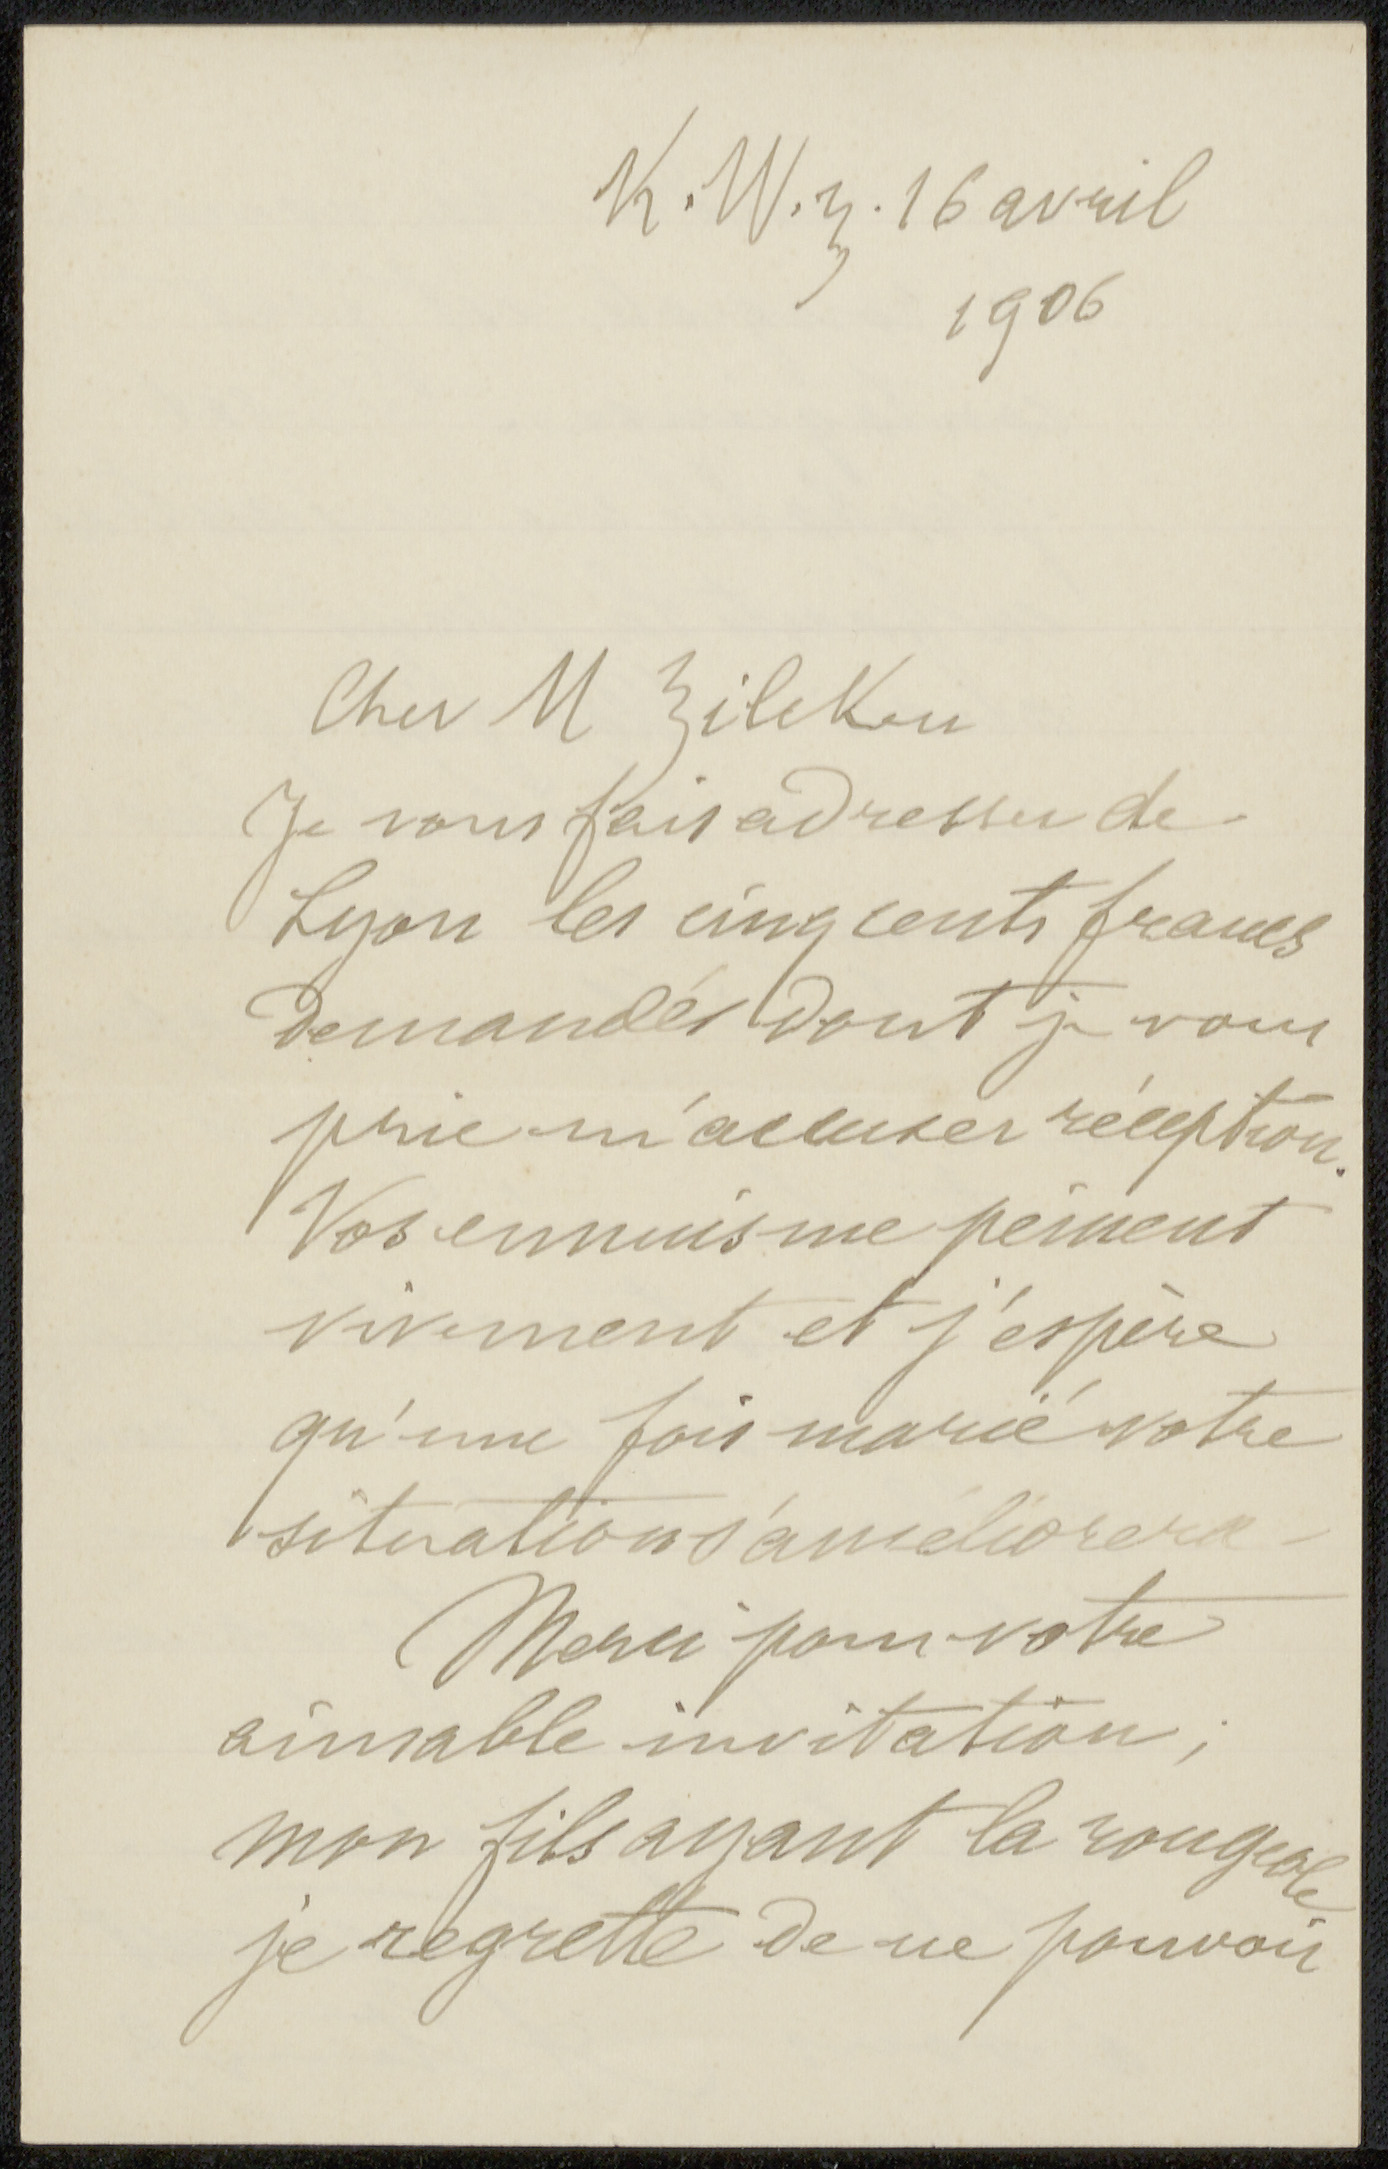 K. W. z. 16 avril
1906
Cher M Zilcken
Je vous fais adresser de
Lyon les cinq cents francs
demandés dont je vous
prie m'accuser réception.
Vos ennuis me peinent
vivement et j'espère
qu'une fois marié votre
situation s'améliorera -
Merci pour votre
aimable invitation ;
mon fils ayant la rougeole
je regrette de ne pouvoir